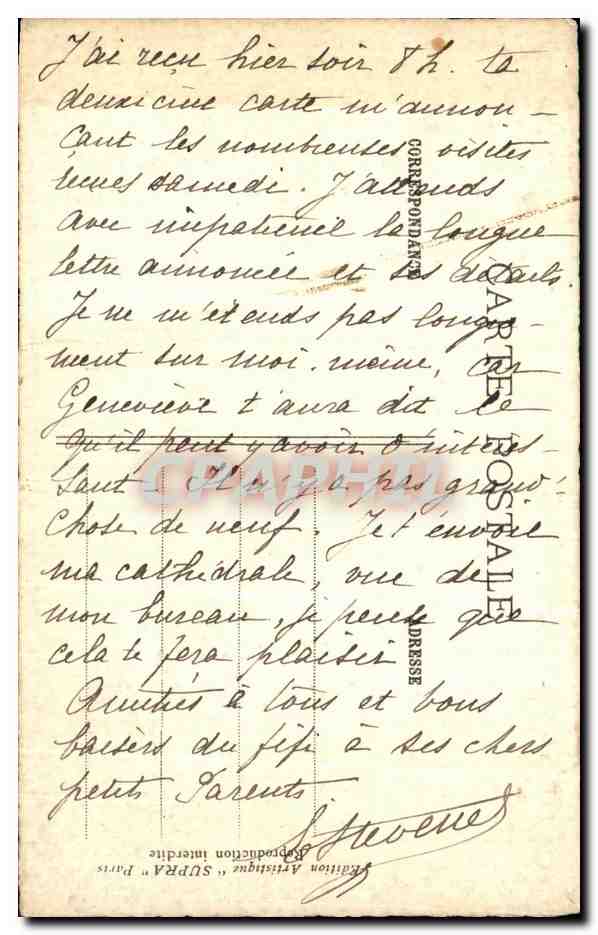 J'ai reçu hier soir 8 h. ta
deuxième carte m'annon-
çant les nombreuses visites
reçues samedi. J'attends
avec impatience la longue
lettre annoncée et ses détails.
Je ne m'étends pas longue-
ment sur moi-même, car
Geneviève t'aura dit ce
qu'il peut y avoir d'intéres-
sant. Il n'y a pas grand'
chose de neuf. Je t'envoie
ma cathédrale, vue de
mon bureau, je pense que
cela te fera plaisir
Amitiés à tous et bons
baisers du fifi à ses chers
petits Parents
CORRESPONDANCE
CARTE POSTALE
ADRESSE
CPAPHIL
Edition Artistique "SUPRA" Paris
Reproduction interdite